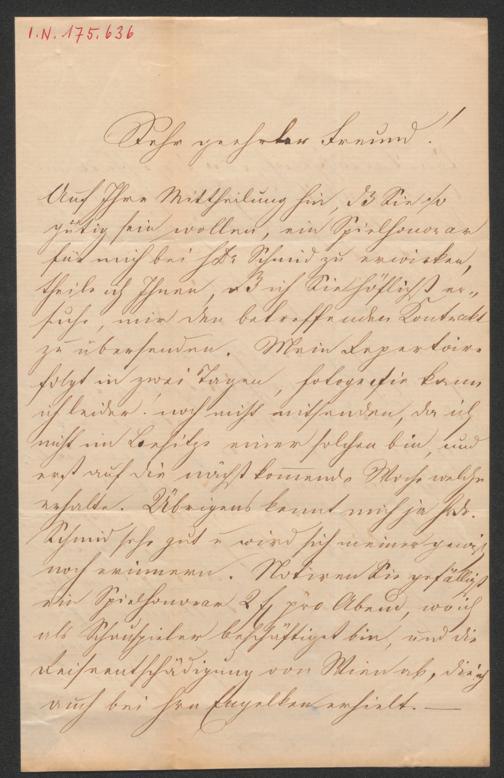 I.N. 175.636
Sehr geehrter Freund!
Auf Ihre Mittheilung hin, dß Sie so
gütig sein wollen, ein Spielhonorar
für mich bei H Dr Schmid zu erwirken,
theile ich Ihnen, dß ich Sie höflichst er„
suche, mir den betreffenden Kontrakt
zu übersenden. Mein Repertoire
folgt in zwei Tagen, fotografie kann
ich leider noch nicht mitsenden, da ich
nicht im Besitze einer solchen bin, und
erst auf die nächstkommende Woche welche
erhalte. Übrigens kennt mich ja H Dr.
Schmid sehr gut u wird sich meiner gewiß
noch erinnern. Notiren Sie gefälligst
ein Spielhonorar 2 f pro Abend, wo ich
als Schauspieler beschäftiget bin, und die
Reiseentschädigung von Wien ab, die ich
auch bei Hrn Engelken erhielt. —